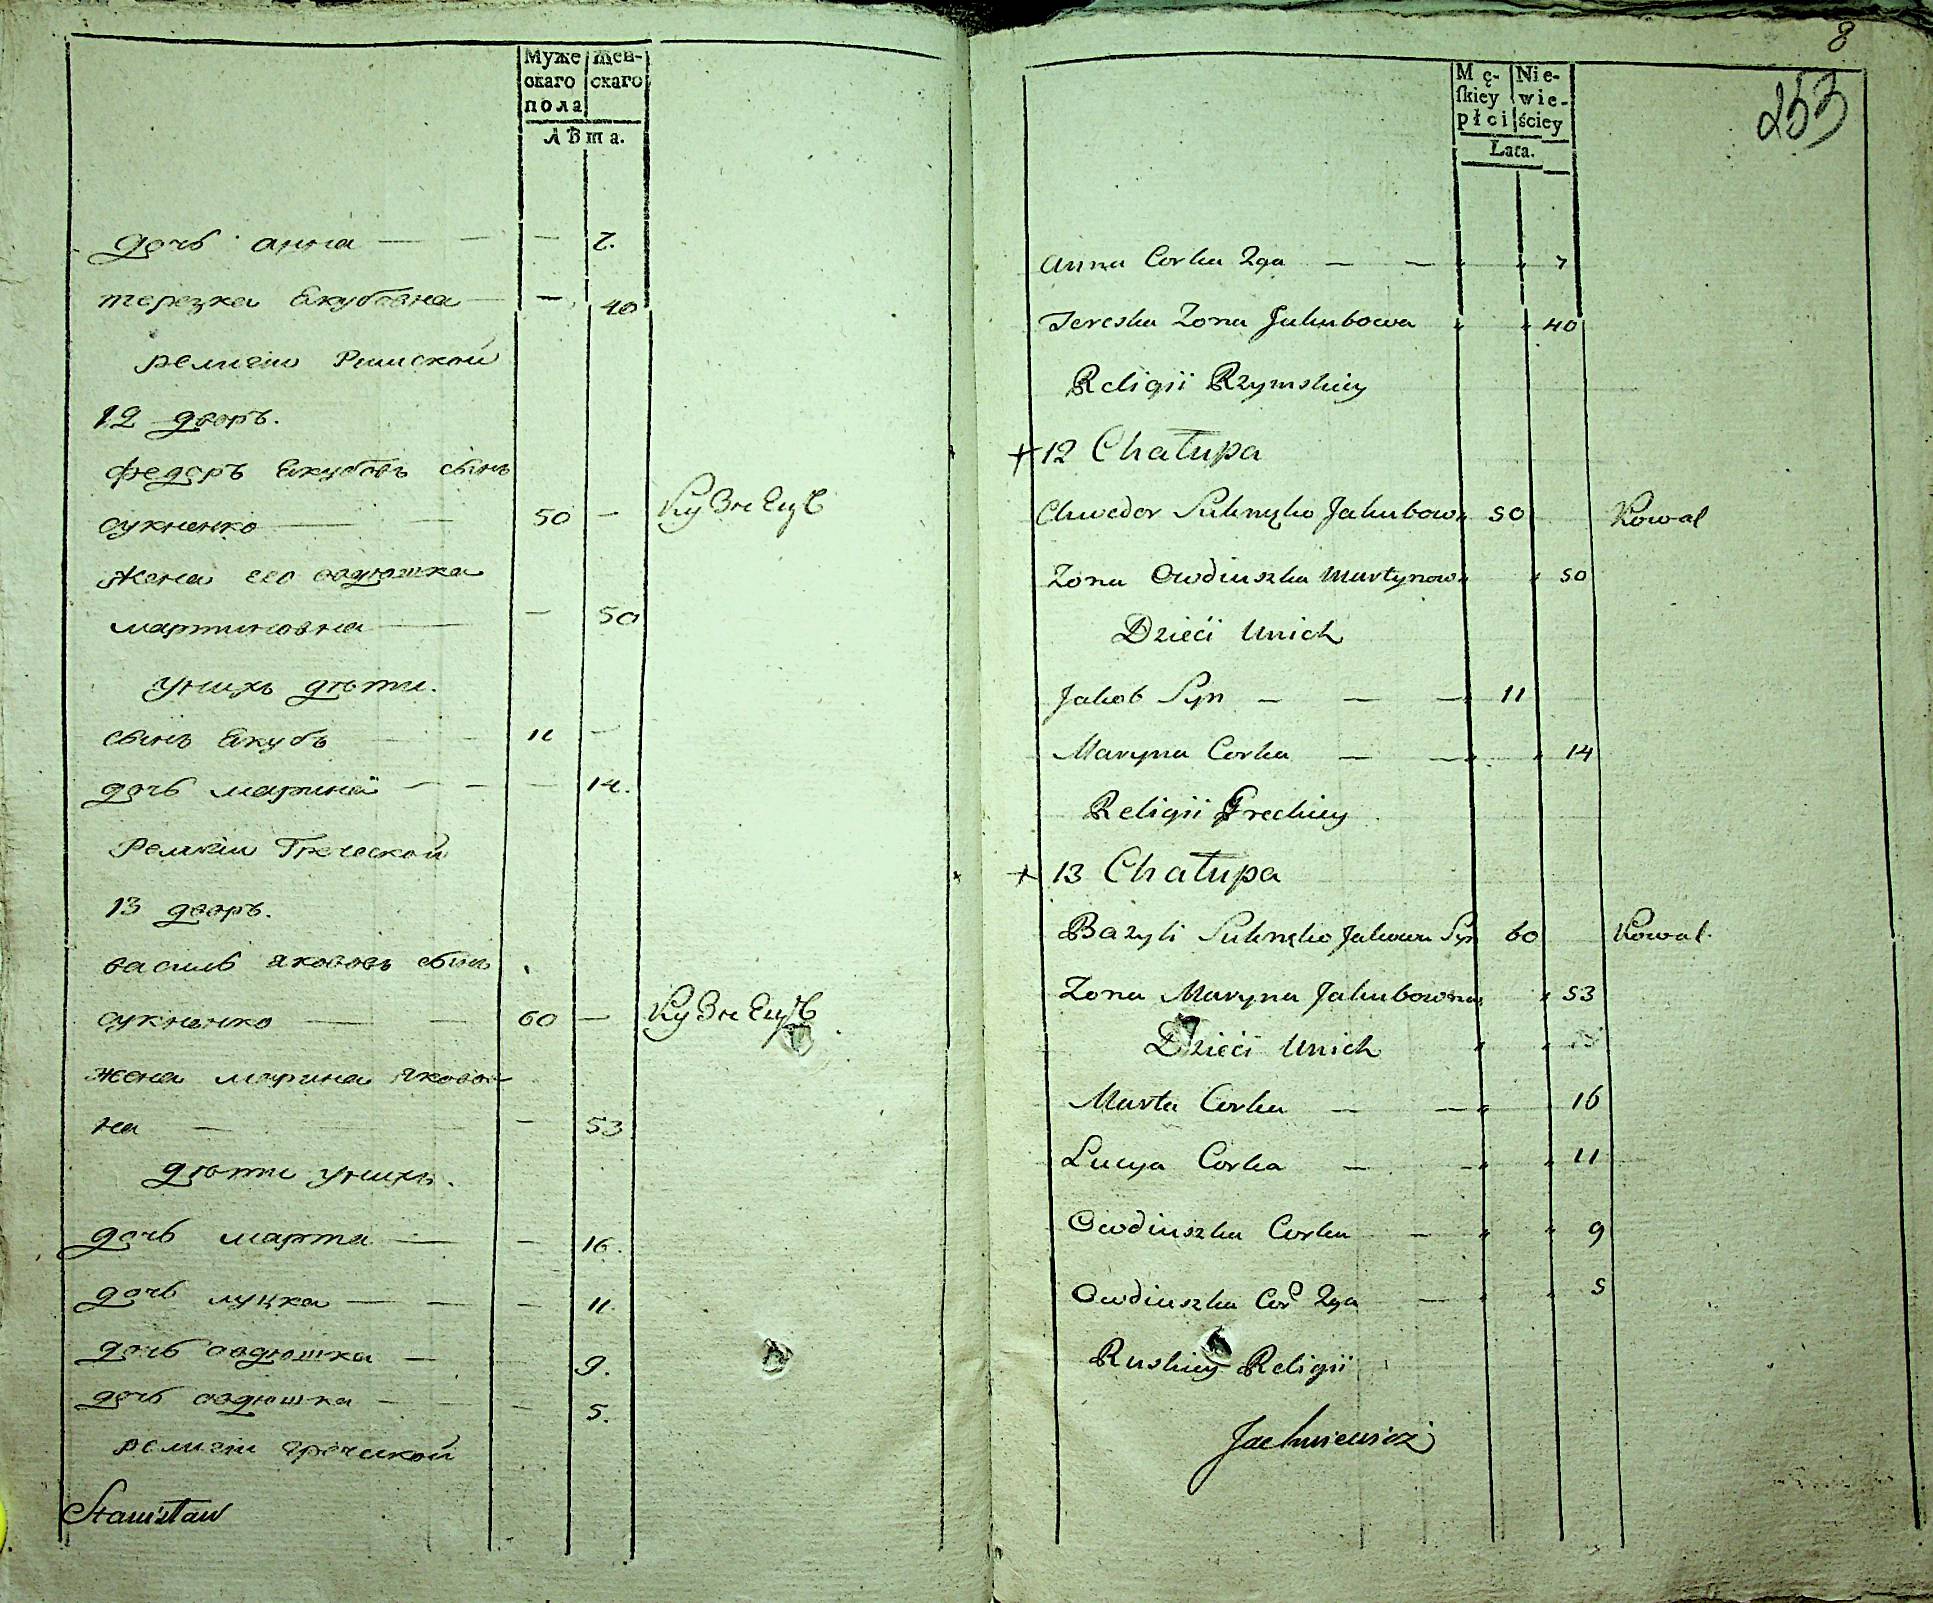 Муже
скаго
пола
Жен-
скаго
Лѣта.
дочь анна — — — 7.
терезка Якубовна — — 40
религіи Римской
12 дворъ.
федоръ Якубовъ сынъ
сукненко — — 50 — Кузнецъ
жена его овдюшка
мартиновна — — 50
у нихъ дѣти.
сынъ Якубъ — — 11 —
дочь марина — — — 14.
Религіи Греческой
13 дворъ.
василь якововъ сынъ
сукненко — — 60 — Кузнецъ
жена марина яковов-
на — — — 53
дѣти у нихъ.
дочь марта — — 16.
дочь луцка — — — 11.
дочь овдюшка — 9.
дочь овдюшка — — — 5.
религіи греческой
Stanisław
8
253
Mę-
skiey
płci
Nie-
wie-
ściey
Lata.
Anna Corka 2ga — — " " 7
Tereska Zona Jakubowa " " 40
Religii Rzymskiey
+ 12 Chałupa
Chwedor Suknęko Jakubow " 50 Kowal
Zona Owdiuszka Martynow " " 50
Dzieći Unich
Jakob Syn — — — " 11
Maryna Corka — — " " 14
Religii Greckiey
+ 13 Chałupa
Bazyli Suknęko Jakowa Syn 60 Kowal.
Zona Maryna Jakubowna " " 53
Dzieći Unich " "
Marta Corka — — " 16
Lucya Corka — — " " 11
Owdiuszka Corka — " " 9
Owdiuszka Cor 2ga — " " 5
Ruskiey Religii
Jachniewicz